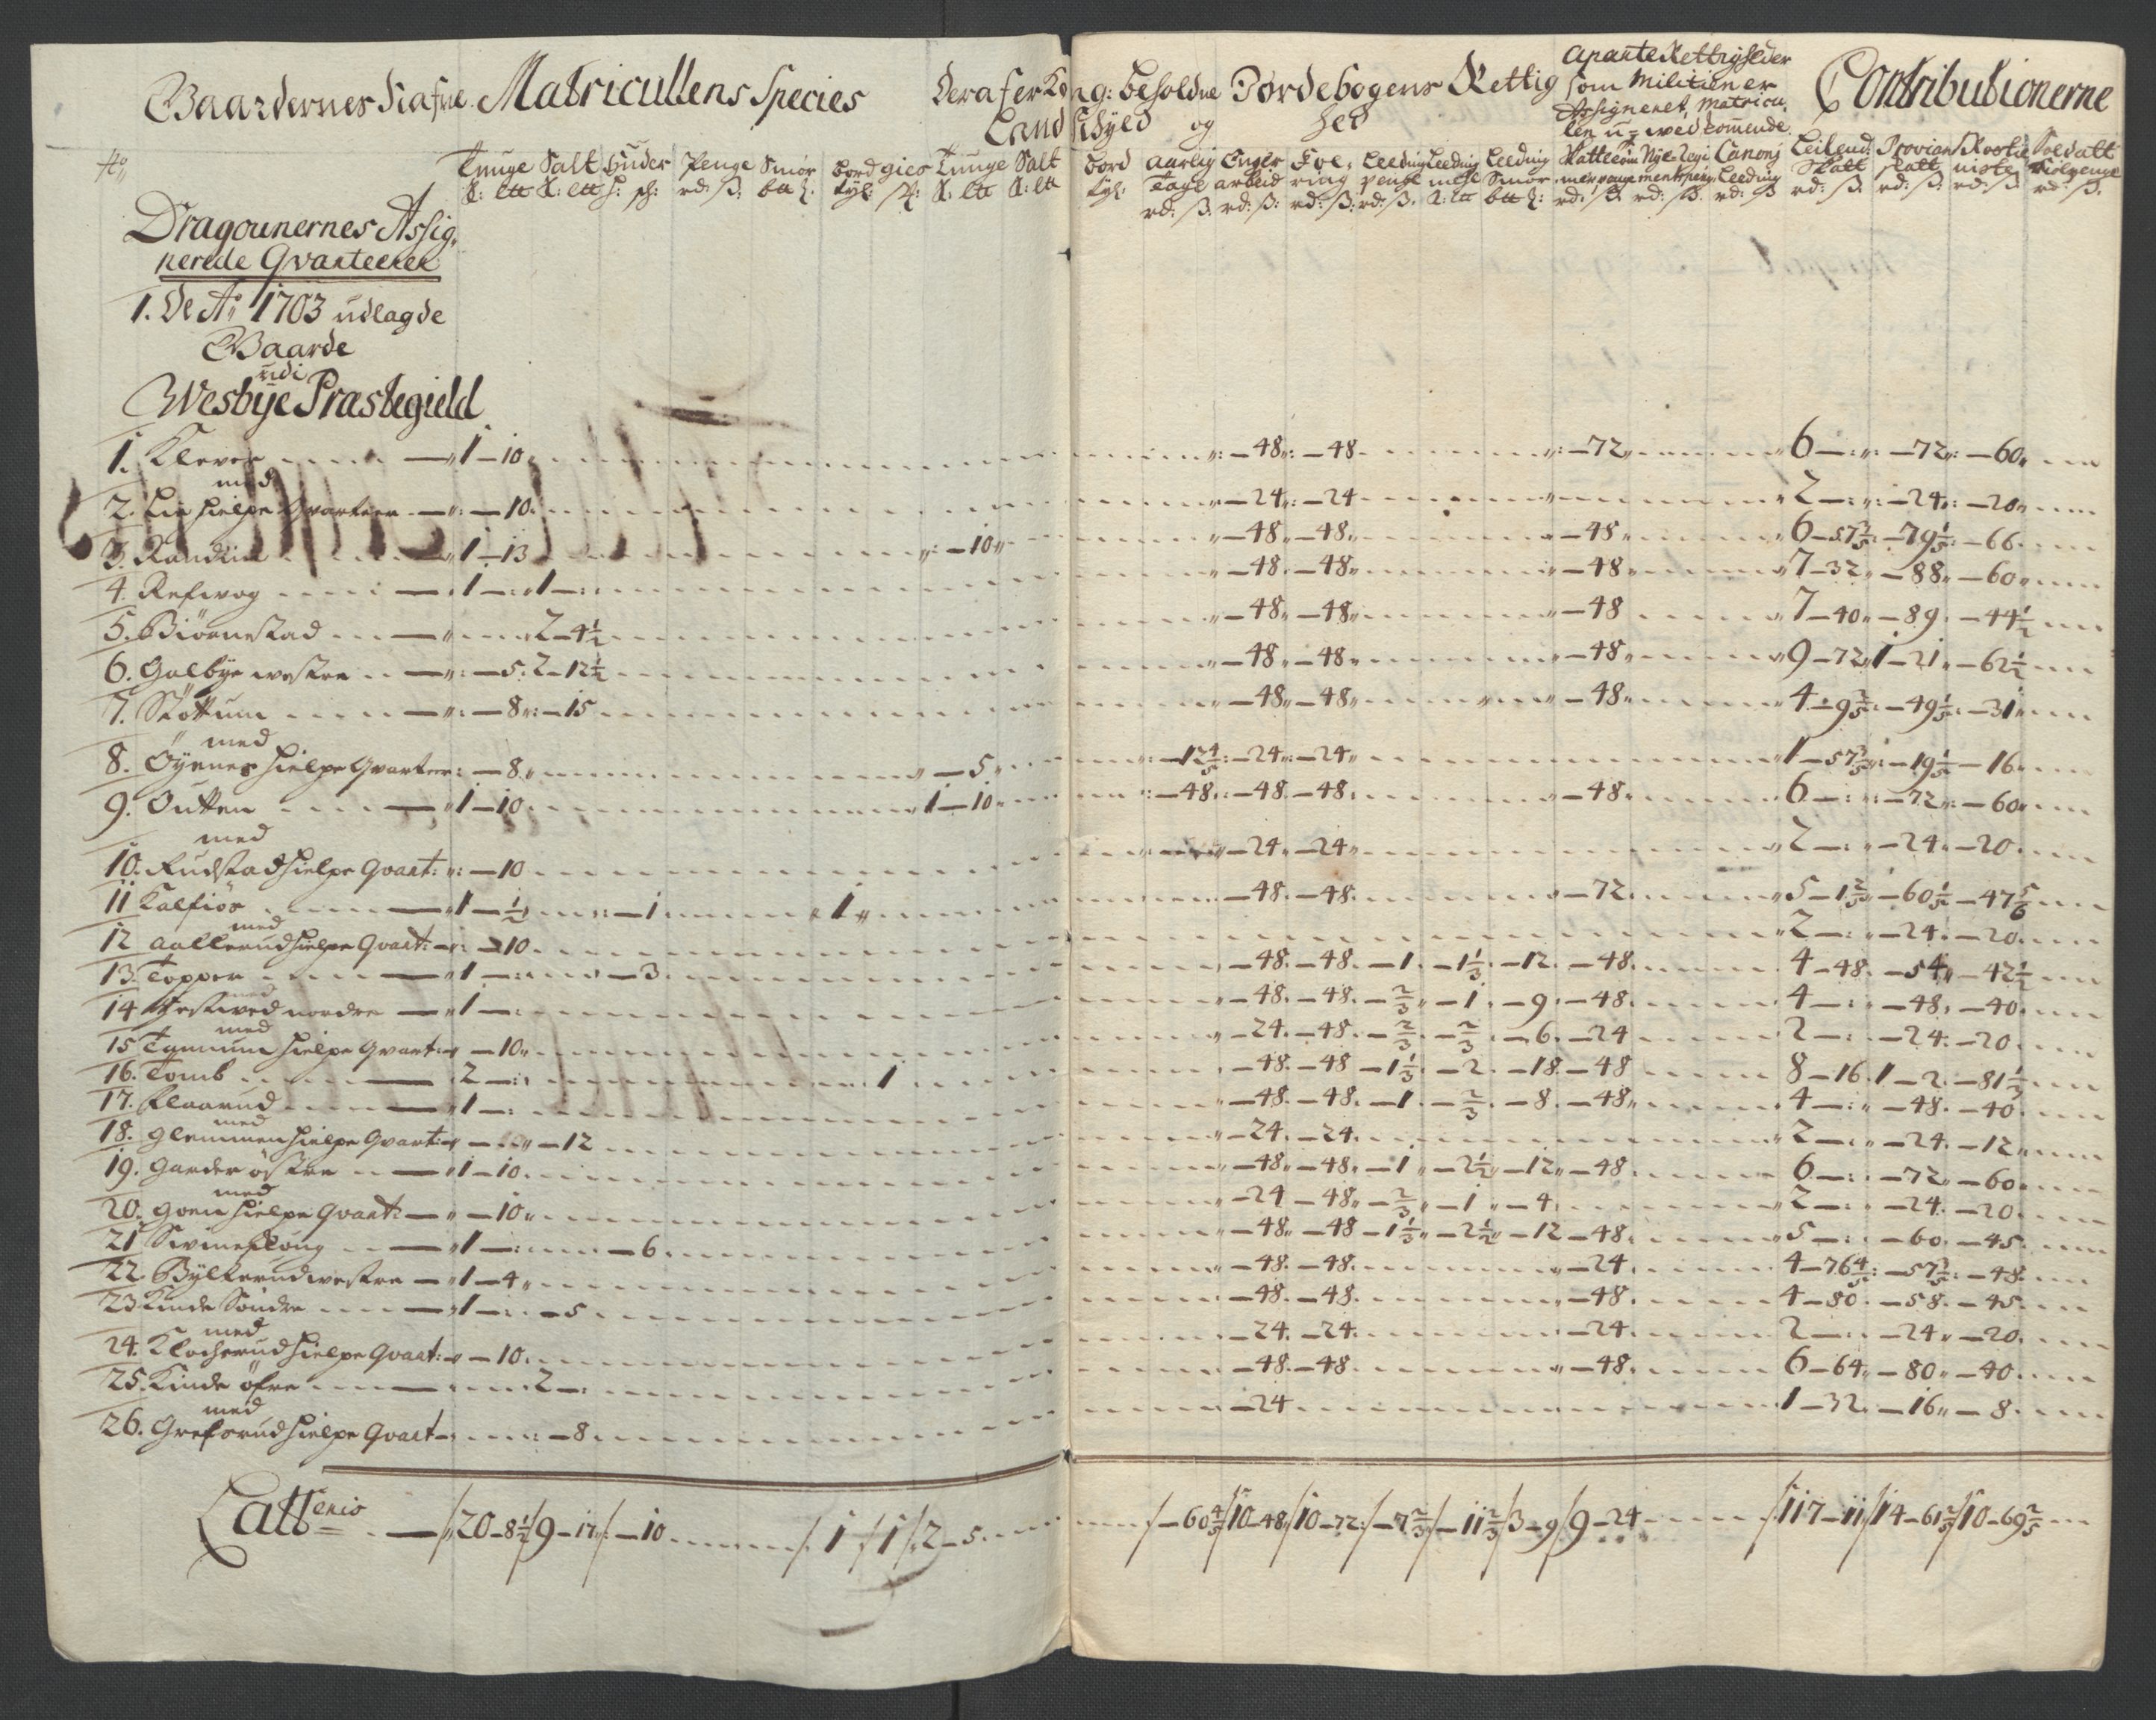 Gaardernes Nafne Matricullens Species Deraf er Kong: beholdne Jordebogens Rettig Aparte Rettigheder Contributionerne
Land Schyld og hed som Militien er
Assigneret, Matricu,
len u-wedkommende
No Tunge Salt Huder Penge Smør bord gies Tunge Salt bord aarlig Enges Foe, Leeding Leeding Leeding Canonj Leilend: Provian Rostie Soldatt
Tage arbeid ring penge meel Smør Leeding Skatt skatt niste
Dragounernes Assig,
nerede Qvarteerer
1. De Ao 1703 udlagde
Gaarde
udi
Wesbye Præstegield
1. Klever 1-10 -48 -48 -72 6 -72 -60
med
2. Lie hielpe Qvarteer -10 -24 -24 2 -24 -20
3. Randlie 1-13 -10 -48 -48 -48 6-57 3/5 -79 1/5 -66
4. Refwog 1 1 -48 -48 -48 7-32 -88 -60
5. Biørnestad 2-4 1/2 -48 -48 -48 7-40 -89 -44 1/2
6. Galbye westre -5 2-12 1/2 -48 -48 -48 9-72 1-21 -62 1/2
7. Støttum -8 -15 -48 -48 -48 4-9 3/5 -49 1/5 -31
med
8. Øyenes hielpe Qvarteer -8 -5 -12 4/5 -24 -24 1-57 3/5 -19 1/5 -16
9. Outten 1-10 1-10 -48 -48 -48 -48 6 -72 -60
med
10. Rudstad hielpe Qvart: -10 -24 -24 2 -24 -20
11 Kalfiør 1-1/2 -1 1 -48 -48 -72 5-1 2/5 -60 1/5 -47 5/6
med
12 Aallerud hielpe Qvart: -10 2 -24 -20
13. Topper 1 -3 -48 -48 -1 -1 1/3 -12 -48 4-48 -54 -42 1/2
14 Hestwed nordre 1 -48 -48 -2/3 -1 -9 -48 4 -48 -40
med
15 Tommum hielpe Qvart: -10 -24 -48 -2/3 -2/3 -6 -24 2 -24 -20
16. Tomb 2 1 -48 -48 -1 1/3 -2 -18 -48 8-16 1-2 -81 1/2
17. Flaarud 1 -48 -48 -1 -2/3 -8 -48 4 -48 -40
med
18. Glemmen hielpe Qvart: -12 -24 -24 2 -24 -12
19. Garder østre 1-10 -48 -48 -1 -2 1/2 -12 -48 6 -72 -60
med
20. Goen hielpe Qvart: -10 -24 -48 -2/3 -1 -4 2 -24 -20
21 Swineskoug 1 -6 -48 -48 -1 1/3 -2 1/2 -12 -48 5 -60 -45
22. Bylkerud westre 1-4 -48 -48 -24 4-76 4/5 -57 3/5 -48
23. Kinde Søndre 1 -5 -48 -48 -48 4-80 -58 -45
med
24. Klocherud hielpe Qvart: -10 -24 -24 -24 2 -24 -20
25. Kinde øfre 2 -48 -48 -48 6-64 -80 -40
med
26. Grefsrud hielpe Qvart -8 -24 1-32 -16 -8
Lattenio 20-8 1/2 9-17 -10 1 1 2-5 -60 4/5 10-48 10-72 -7 2/3 -11 2/3 3-9 9-24 117-11 14-61 2/5 10-69 2/5